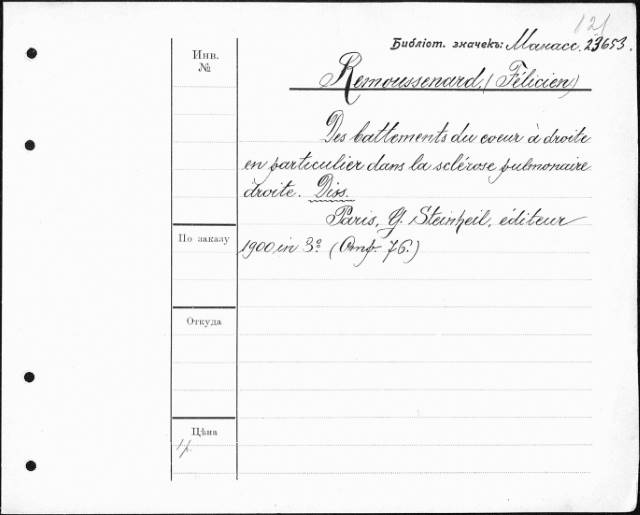 121
Библіот. значекъ: Манасс. 23653.
Инв.
№
Remoussenard, (Félicien)
Des battements du coeur à droite
en particulier dans la sclérose pulmonaire
droite. Diss.
Paris, G. Steinheil, éditeur
По заказу
1900, in 8º (стр. 76.)
Откуда
Цѣна
1р.